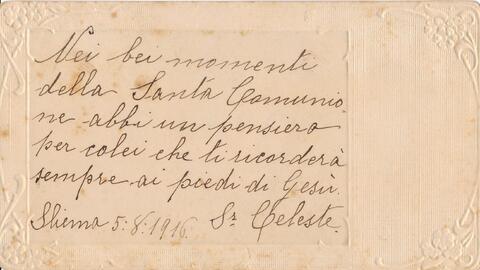 Nei bei momenti
della Santa Comunio
ne abbi un pensiero
per colei che ti ricorderà
sempre ai piedi di Gesù.
5.8.1916. Sr Celeste.